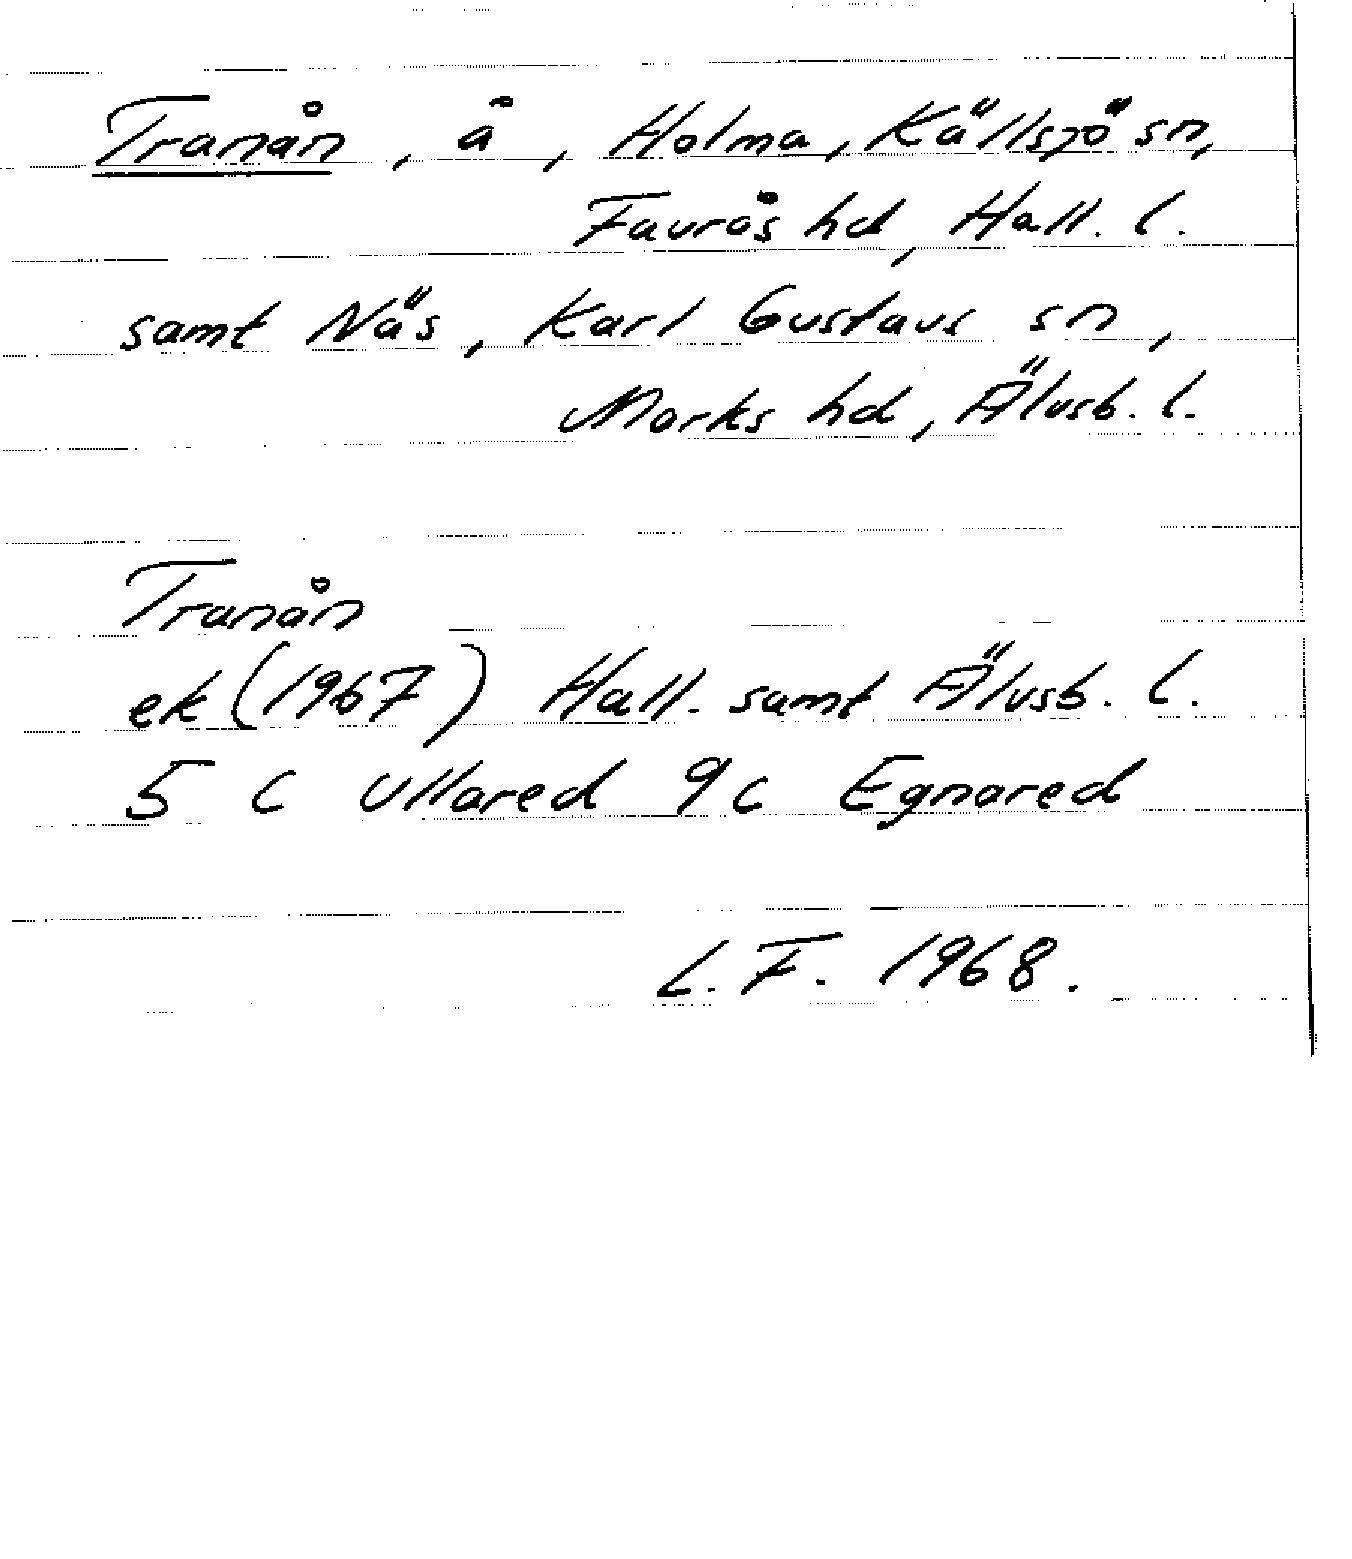 Tranån, å, Holma, Källsjö sn,
Faurås hd, Hall. l.
samt Näs, Karl Gustavs sn,
Marks hd, Älvsb. l.
Tranån
ek (1967) Hall. samt Älvsb. l.
5 C Ullared 9 c Egnared
L. F. 1968.